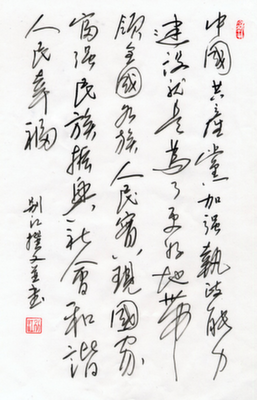 中國共產黨加强執政能力
建设就是為了更好地帶
領全國各族人民實现國家
富强民族振興社會和諧
人民幸福
撰文並书